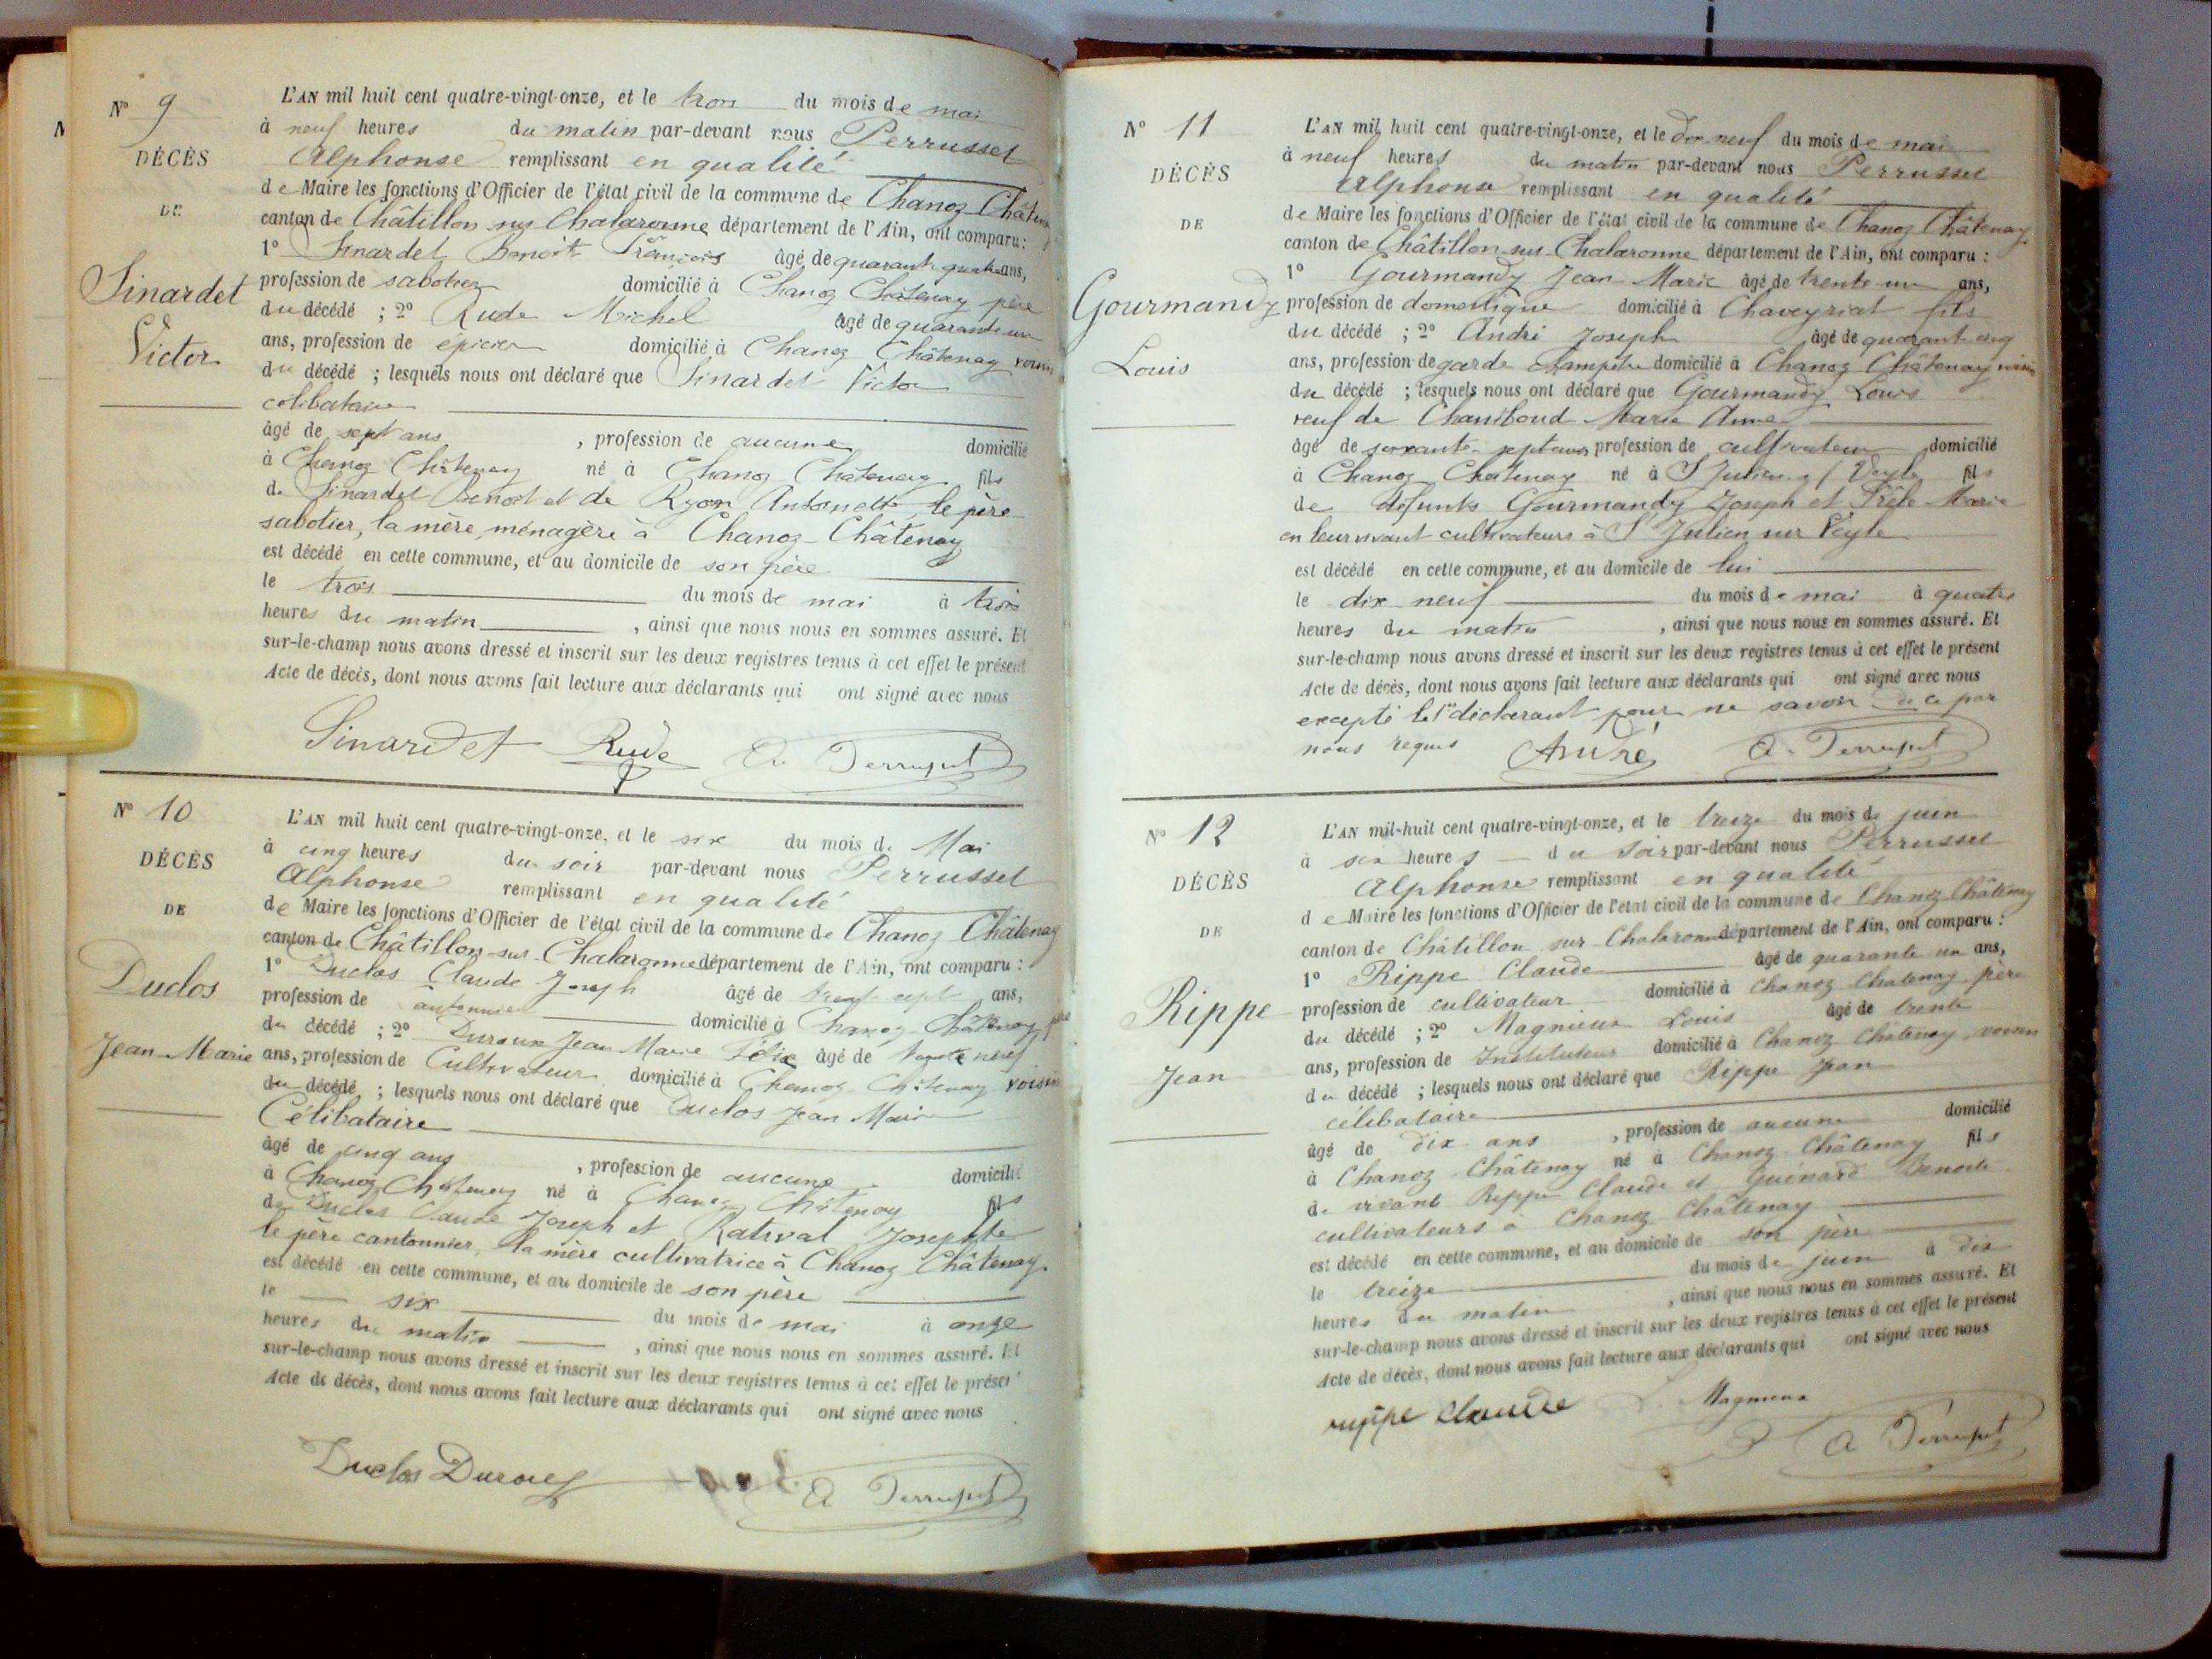 N° 9
DÉCÈS
DE
Sinardet
Victor
L'AN mil huit cent quatre-vingt-onze, et le trois du mois de mai
à neuf heures du matin par-devant nous Perrusset
Alphonse remplissant en qualité
de Maire les fonctions d'Officier de l'état civil de la commune de Chanoz Châtenay
canton de Châtillon sur Chalaronne département de l'Ain, ont comparu :
1° Sinardet Benoit François âgé de quarante quatre ans,
profession de sabotier domicilié à Chanoz Châtenay père
du décédé ; 2° Rude Michel âgé de quarante un
ans, profession de épicier domicilié à Chanoz Châtenay voisin
du décédé ; lesquels nous ont déclaré que Sinardet Victor
célibataire
âgé de sept ans , profession de aucune domicilié
à Chanoz Châtenay né à Chanoz Châtenay fils
de Sinardet Benoit et de Ryon Antoinette, le père
sabotier, la mère, ménagère à Chanoz-Châtenay
est décédé en cette commune, et au domicile de son père
le trois du mois de mai à trois
heures du matin , ainsi que nous nous en sommes assuré. Et
sur-le-champ nous avons dressé et inscrit sur les deux registres tenus à cet effet le présent
Acte de décès, dont nous avons fait lecture aux déclarants qui ont signé avec nous
Sinardet Rude A. Perrusset
N° 10
DÉCÈS
DE
Duclos
Jean-Marie
L'AN mil huit cent quatre-vingt-onze, et le six du mois de Mai
à cinq heures du soir par-devant nous Perrusset
Alphonse remplissant en qualité
de Maire les fonctions d'Officier de l'état civil de la commune de Chanoz Châtenay
canton de Châtillon-sur-Chalaronne département de l'Ain, ont comparu :
1° Duclos Claude Joseph âgé de trente sept ans,
profession de cantonnier domicilié à Chanoz Châtenay père
du décédé ; 2° Duroux Jean Marie Félix âgé de neuf
ans, profession de Cultivateur domicilié à Chanoz Châtenay voisin
du décédé ; lesquels nous ont déclaré que Duclos Jean Marie
Célibataire
âgé de cinq ans , profession de aucune domicilié
à Chanoz Châtenay né à Chanoz Châtenay fils
de Duclos Claude Joseph et Rativat Josephte
le père cantonnier, la mère cultivatrice à Chanoz Châtenay
est décédé en cette commune, et au domicile de son père
le six du mois de mai à onze
heures du matin , ainsi que nous nous en sommes assuré. Et
sur-le-champ nous avons dressé et inscrit sur les deux registres tenus à cet effet le présent
Acte de décès, dont nous avons fait lecture aux déclarants qui ont signé avec nous
Duclos Duroux A Perrusset
N° 11
DÉCÈS
DE
Gourmandy
Louis
L'AN mil huit cent quatre-vingt-onze, et le dix neuf du mois de mai
à neuf heures du matin par-devant nous Perrusset
Alphonse remplissant en qualité
de Maire les fonctions d'Officier de l'état civil de la commune de Chanoz Châtenay
canton de Châtillon-sur-Chalaronne département de l'Ain, ont comparu :
1° Gourmandy Jean Marie âgé de trente un ans,
profession de domestique domicilié à Chaveyriat fils
du décédé ; 2° André Joseph âgé de quarante cinq
ans, profession de garde champêtre domicilié à Chanoz Châtenay voisin
du décédé ; lesquels nous ont déclaré que Gourmandy Louis
veuf de Chaniboud Marie Anne
âgé de soixante-sept ans profession de cultivateur domicilié
à Chanoz Châtenay né à St Julien s/ Veyle fils
de défunts Gourmandy Joseph et Frèle Marie
en leur vivant cultivateurs à St Julien sur Veyle
est décédé en cette commune, et au domicile de lui
le dix-neuf du mois de mai à quatre
heures du matin , ainsi que nous nous en sommes assuré. Et
sur-le-champ nous avons dressé et inscrit sur les deux registres tenus à cet effet le présent
Acte de décès, dont nous avons fait lecture aux déclarants qui ont signé avec nous
excepté le 1er déclarant pour ne savoir de ce par
nous requis André A. Perrusset
N° 12
DÉCÈS
DE
Rippe
Jean
L'AN mil-huit cent quatre-vingt-onze, et le treize du mois de juin
à six heures du soir par-devant nous Perrusset
Alphonse remplissant en qualité
de Maire les fonctions d'Officier de l'état civil de la commune de Chanoz Châtenay
canton de Châtillon sur Chalaronne département de l'Ain, ont comparu :
1° Rippe Claude âgé de quarante un ans,
profession de cultivateur domicilié à Chanoz Chatenay père
du décédé ; 2° Magnieux Louis âgé de trente
ans, profession de Instituteur domicilié à Chanoz Châtenay voisin
du décédé ; lesquels nous ont déclaré que Rippe Jean
célibataire
âgé de dix ans , profession de aucune domicilié
à Chanoz-Châtenay né à Chanoz-Châtenay fils
de vivant Rippe Claude et Guénard Benoite
cultivateurs à Chanoz Châtenay
est décédé en cette commune, et au domicile de son père
le treize du mois de juin à dix
heures du matin , ainsi que nous nous en sommes assuré. Et
sur-le-champ nous avons dressé et inscrit sur les deux registres tenus à cet effet le présent
Acte de décès, dont nous avons fait lecture aux déclarants qui ont signé avec nous
rippe claude L. Magnieux
A Perrusset